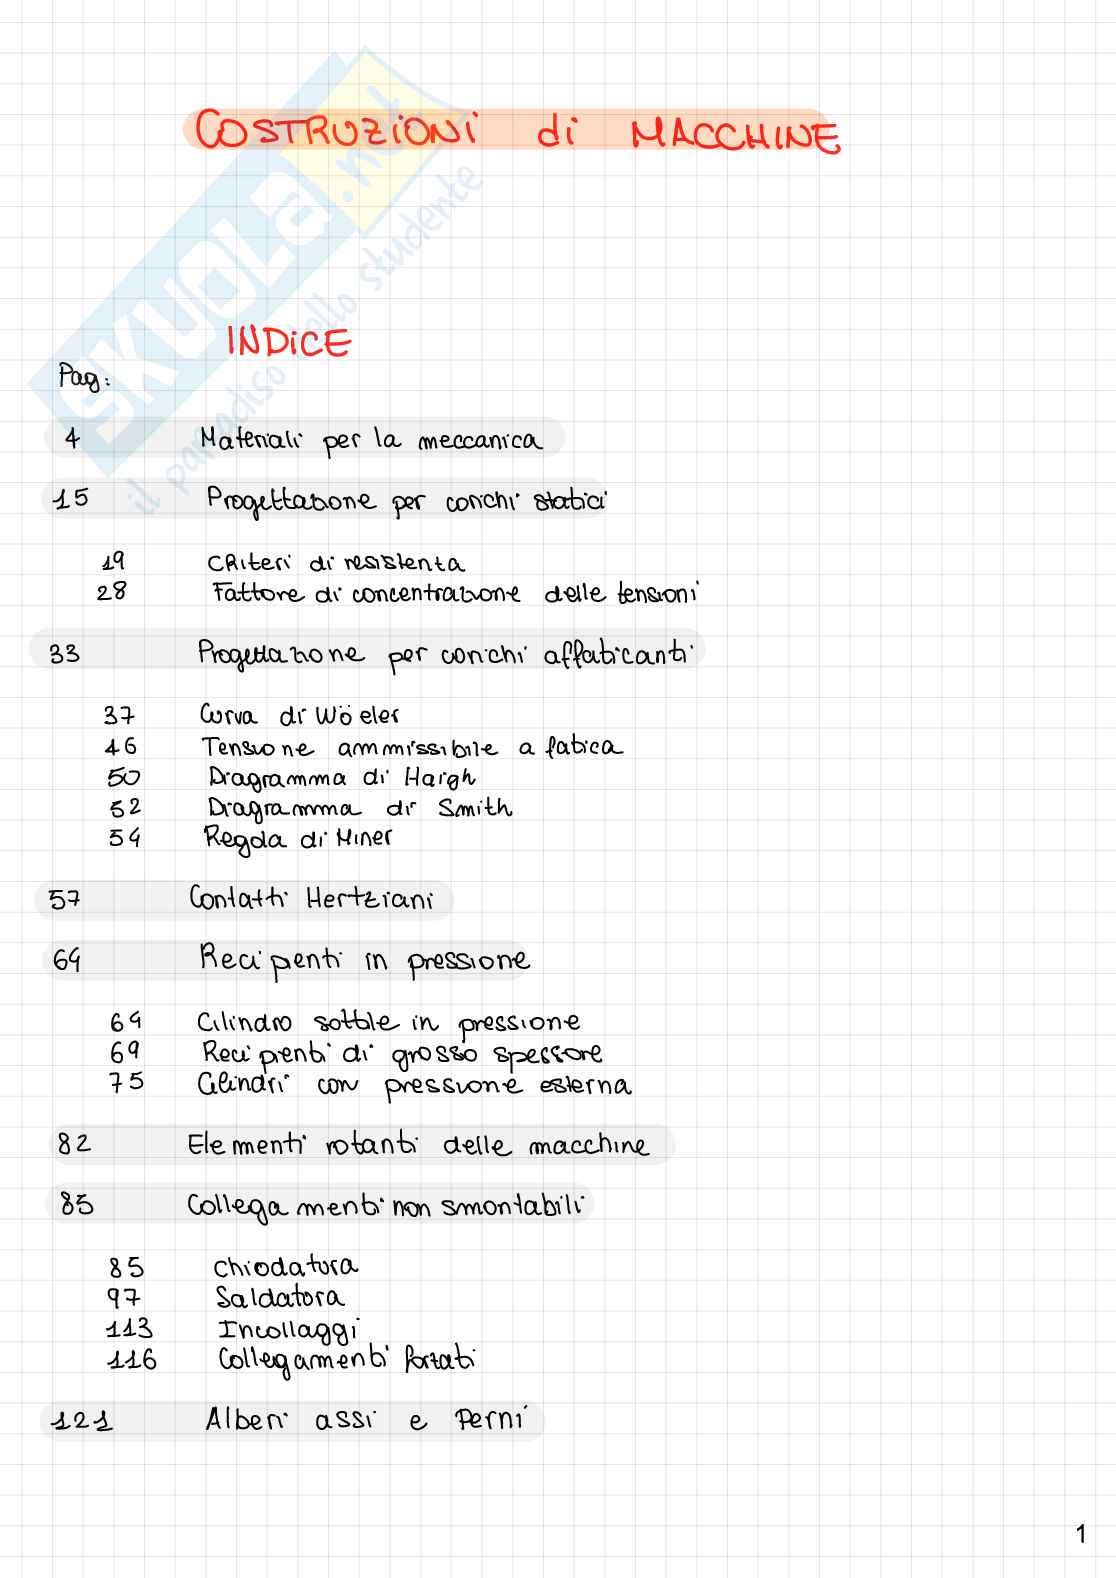 COSTRUZIONI di MACCHINE
SKUOLA.net
il paradiso dello studente
INDICE
Pag:
4 Materiali per la meccanica
15 Progettazione per carichi statici
19 Criteri di resistenza
28 Fattore di concentrazione delle tensioni
33 Progettazione per carichi affaticanti
37 Curva di Wöeler
46 Tensione ammissibile a fatica
50 Diagramma di Haigh
52 Diagramma di Smith
54 Regola di Miner
57 Contatti Hertziani
64 Recipienti in pressione
64 Cilindro sottile in pressione
69 Recipienti di grosso spessore
75 Cilindri con pressione esterna
82 Elementi rotanti delle macchine
85 Collegamenti non smontabili
85 Chiodatura
97 Saldatura
113 Incollaggi
116 Collegamenti forzati
121 Alberi assi e Perni
1